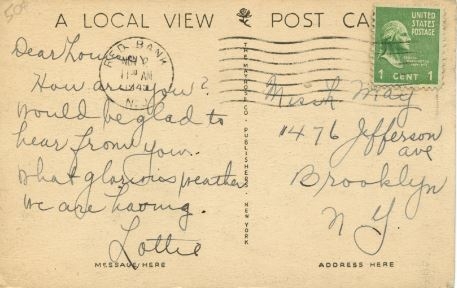 50¢
A LOCAL VIEW POST CA
UNITED
STATES
POSTAGE
1 CENT 1
RED BANK
11 30 AM
N.J.
Dear
How are you?
Would be glad to
hear from you.
What glorious weather
we are having.
Lottie
May
1476 Jefferson
ave
Brooklyn
N Y
PUBLISHERS, NEW YORK
MESSAGE HERE
ADDRESS HERE